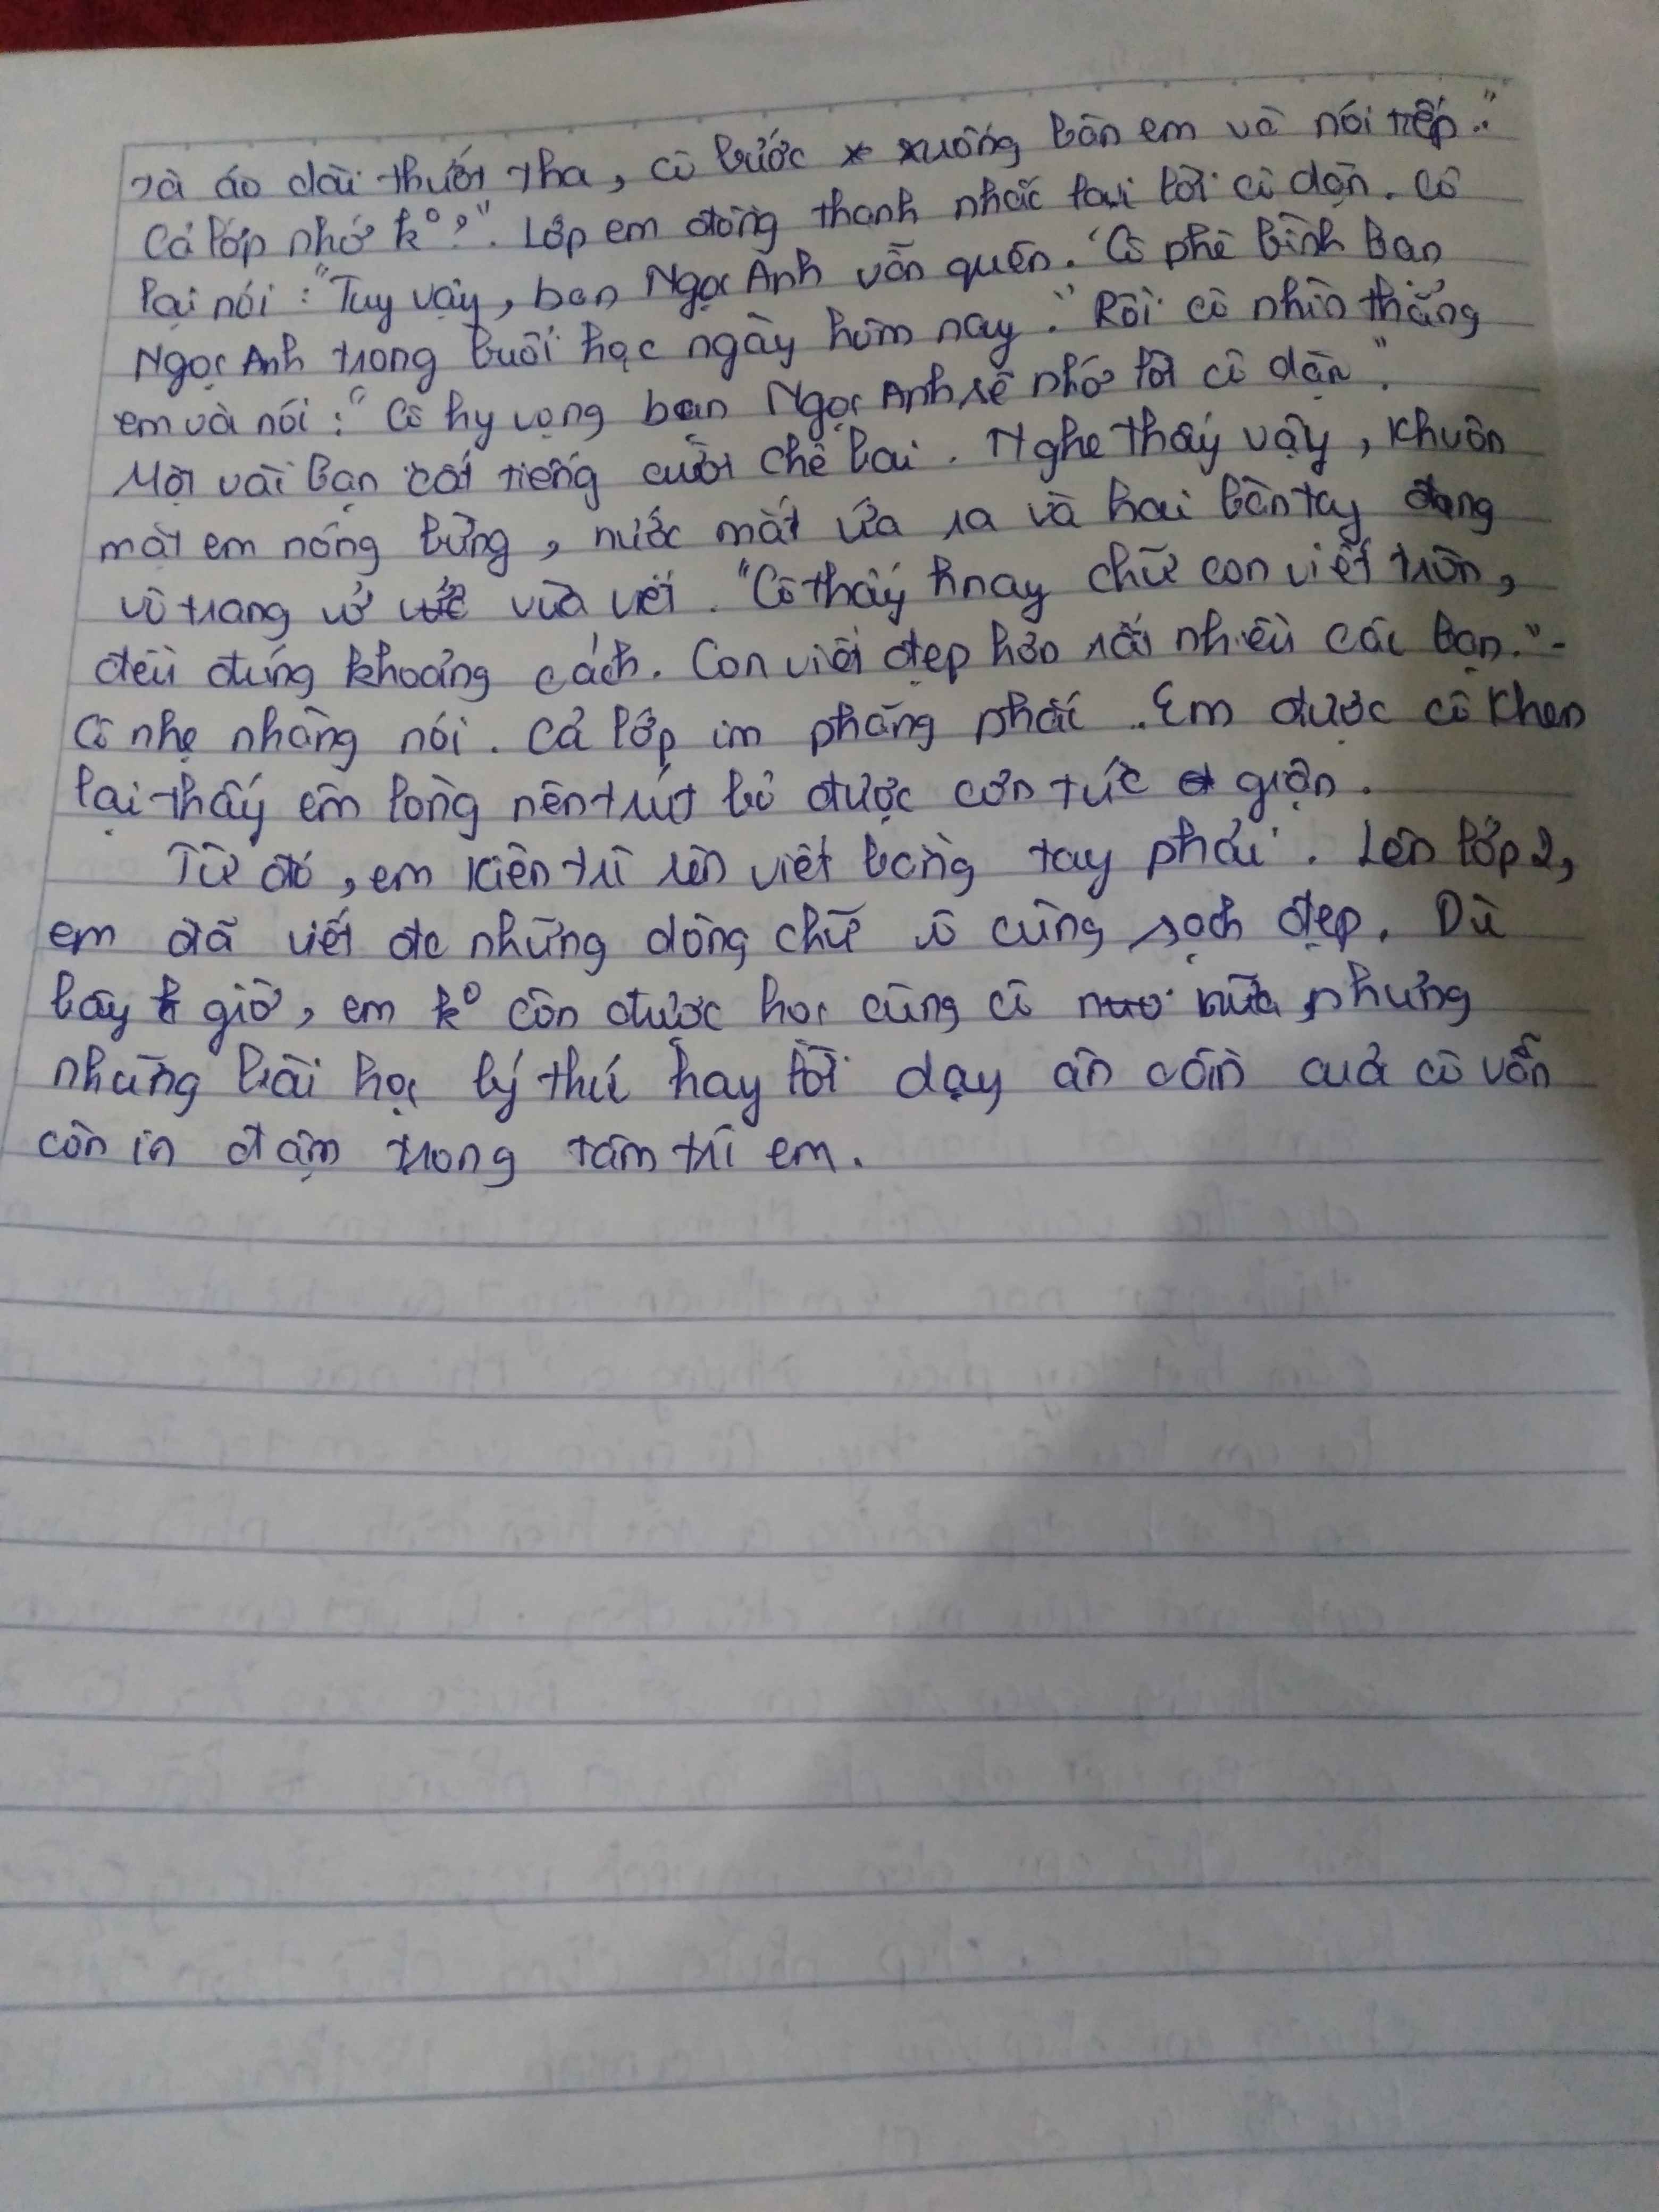 tà áo dài thướt tha, cô bước xuống bàn em và nói tiếp: "
Cả lớp nhớ k°?". Lớp em đồng thanh nhắc lại lời cô dặn. Cô
lại nói: "Tuy vậy, bạn Ngọc Anh vẫn quên. Cô phê bình bạn
Ngọc Anh trong buổi học ngày hôm nay." Rồi cô nhìn thẳng
em và nói: "Cô hy vọng bạn Ngọc Anh sẽ nhớ lời cô dặn".
Một vài bạn cất tiếng cười chê bai. Nghe thấy vậy, khuôn
mặt em nóng bừng, nước mắt ứa ra và hai bàn tay đang
vò trang vở vừa viết. "Cô thấy hnay chữ con viết tròn,
đều đúng khoảng cách. Con viết đẹp hơn rất nhiều các bạn."-
Cô nhẹ nhàng nói. Cả lớp im phăng phắc. Em được cô khen
lại thấy êm lòng nên trút bỏ được cơn tức giận.
Từ đó, em kiên trì rèn viết bằng tay phải. Lên lớp 2,
em đã viết đc những dòng chữ vô cùng sạch đẹp. Dù
bây giờ, em k° còn được học cùng cô nữa, nhưng
những bài học lý thú hay lời dạy ân cần của cô vẫn
còn in đậm trong tâm trí em.